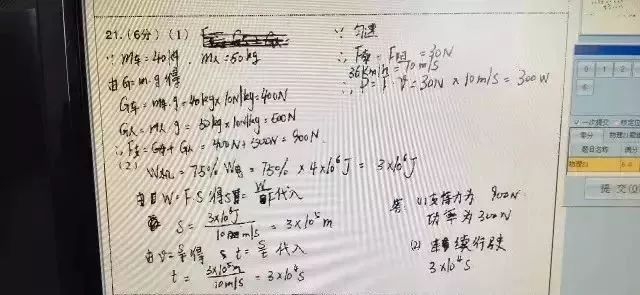 21.(6分)(1)
∵ m车=40kg, m人=50kg
由G=m·g得
G车=m车·g=40kg×10N/kg=400N
G人=m人·g=50kg×10N/kg=500N
∴F支=G车+G人=400N+500N=900N.
(2)
W机=75% W电=75%×4×10⁶J=3×10⁶J
由W=F·S得S= 代入
S=3×10⁶J/ m/s=3×10⁵m
由v=s/t得 t=s/t代入
t=3×10⁵m/10m/s=3×10⁴s
∵匀速
∴F牵=F阻=30N
36km/h=10m/s
∴P=F·v=30N×10m/s=300W
答:(1)支持力为900N
功率为300N
(2) 续行驶
3×10⁴s
0 1 2
6
一次提交
题名称 满分
物理21 6.0
提交(Q